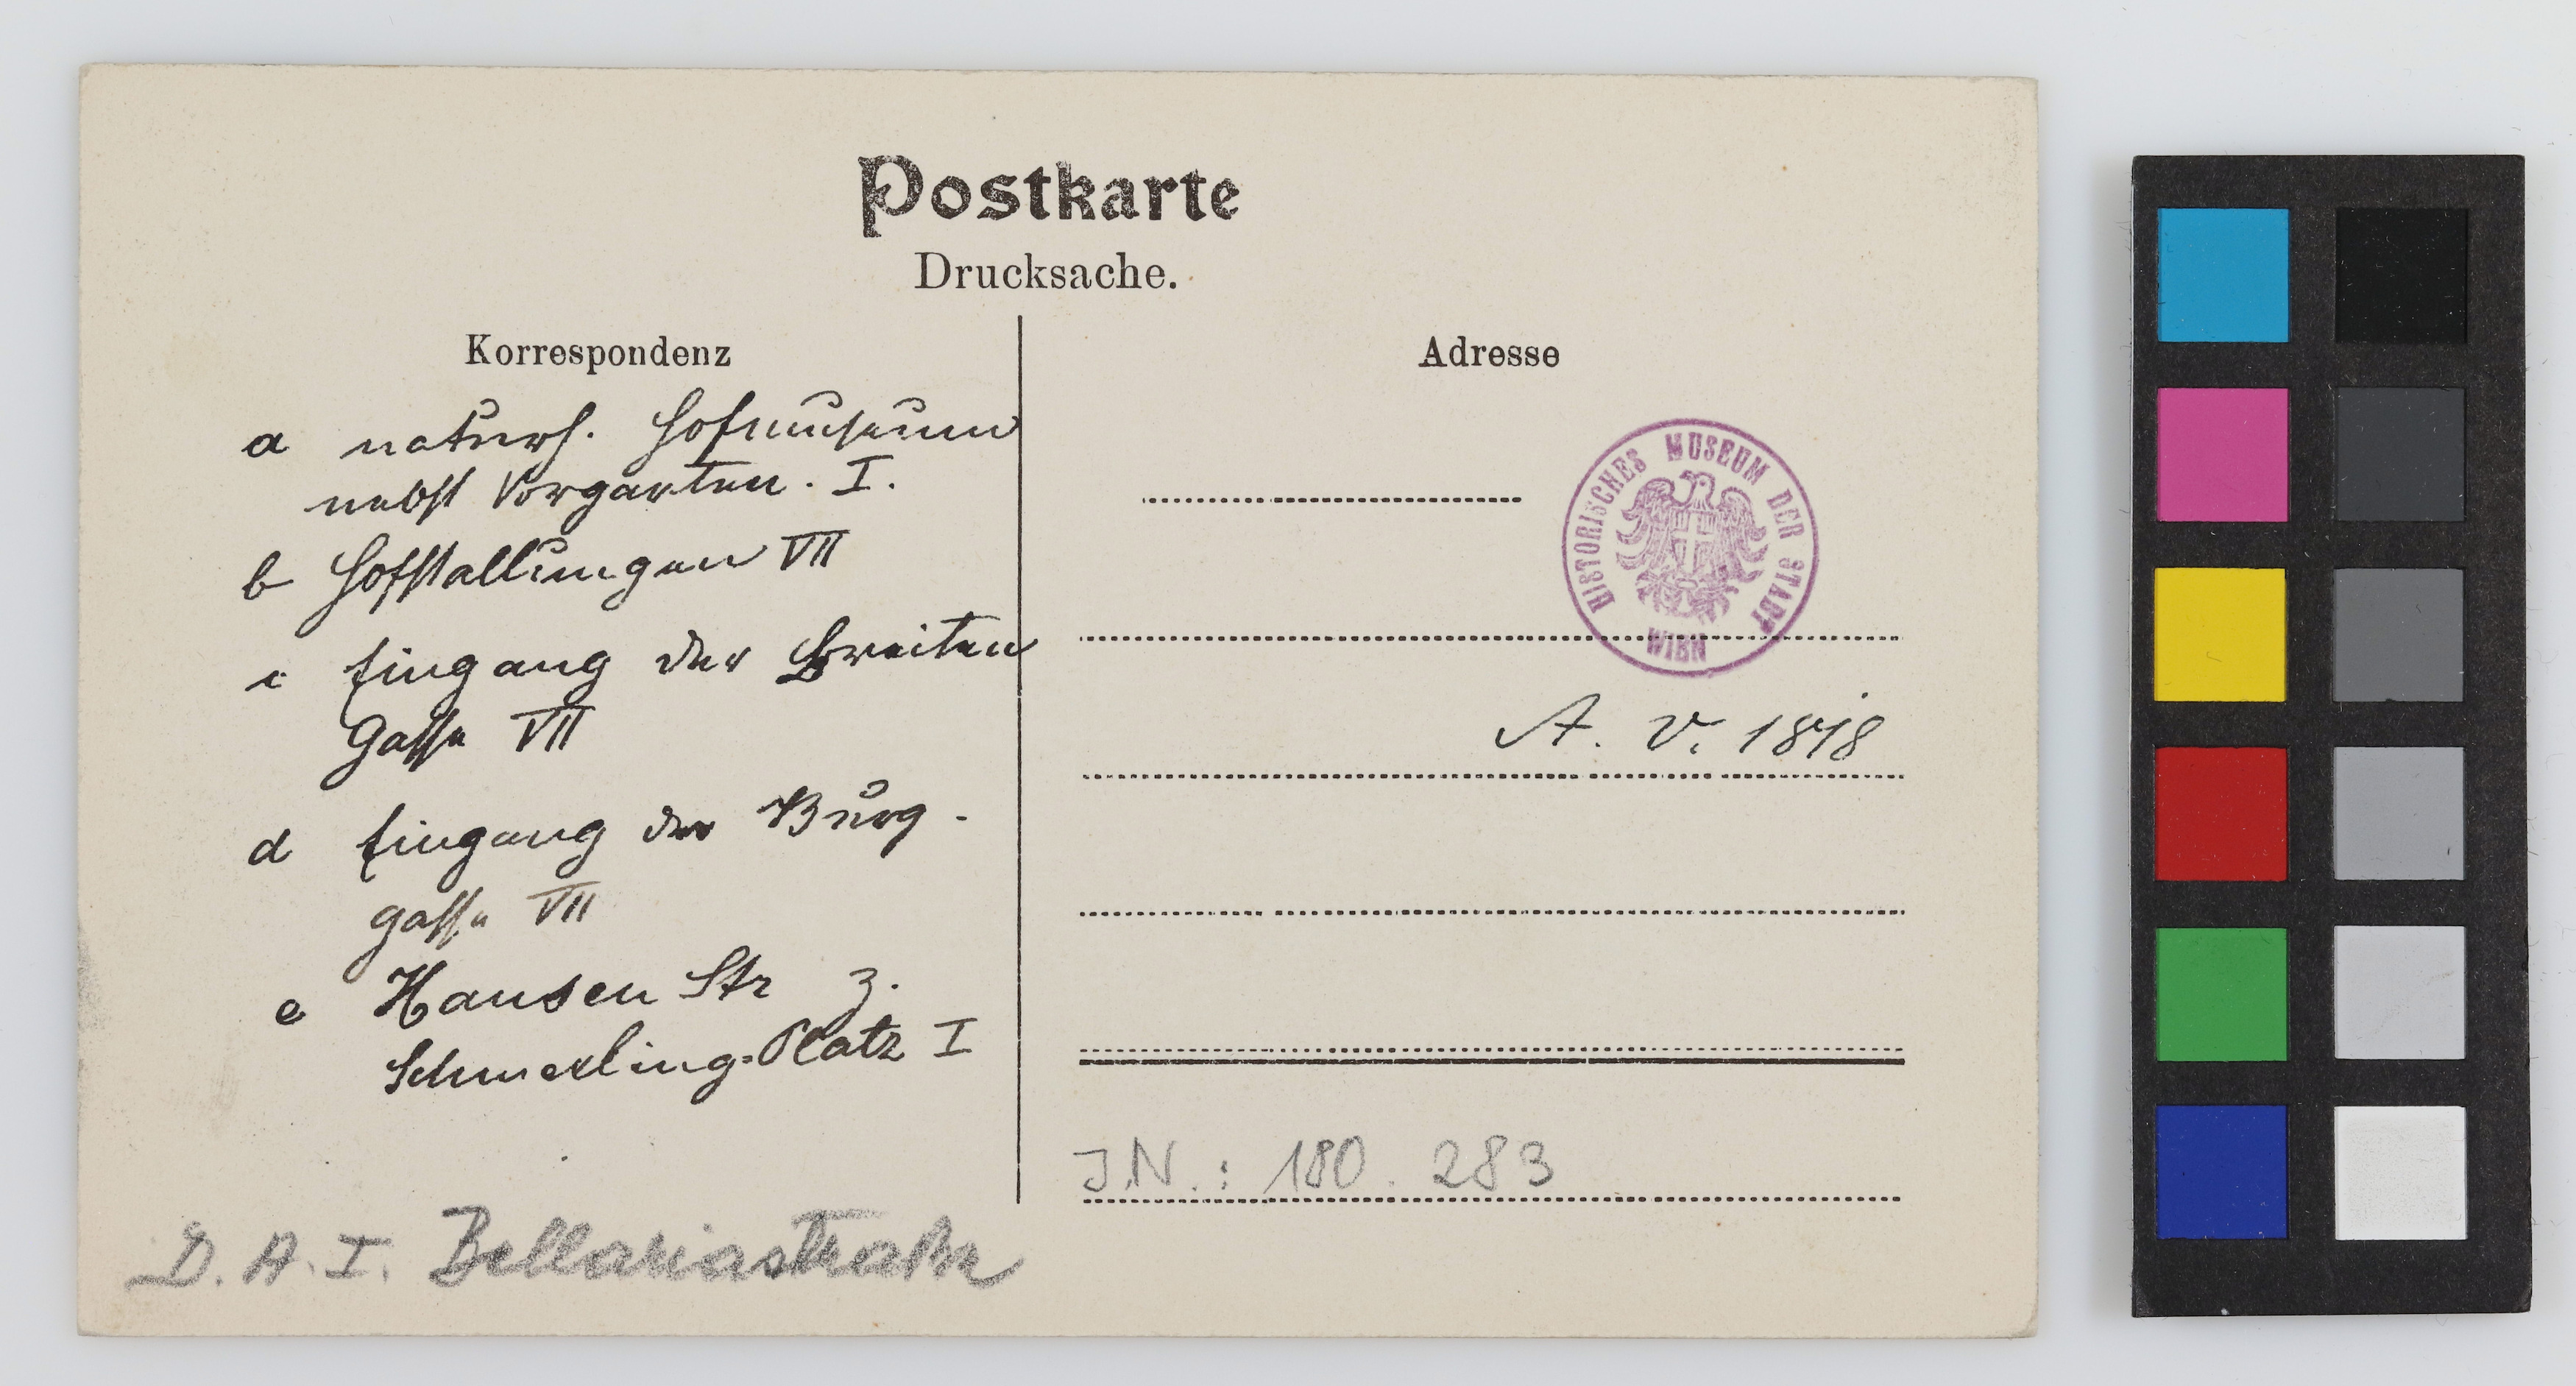 Postkarte
Drucksache.
Korrespondenz
a naturh. Hofmuseum
nebst Vorgarten. I.
b Hofstallungen VII
c Eingang der Breiten
Gasse VII
d Eingang der Burg-
gasse VII
e Hansen Str z.
Schmerling-Platz I
D. A. I. Bellariastraße
Adresse
HISTORISCHES MUSEUM DER STADT
WIEN
A. V. 1818
J.N.: 180. 283